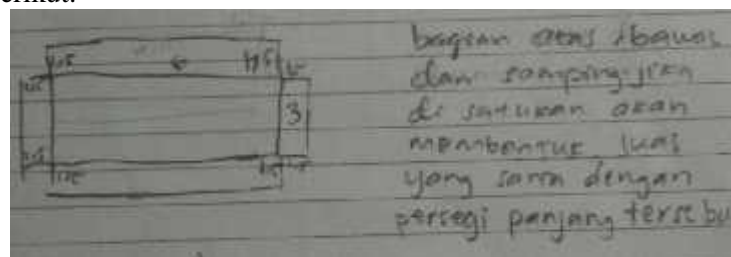 erikut.
bagian atas, bawah
dan samping jika
di satukan akan
membentuk luas
yang sama dengan
persegi panjang tersebu
6
3